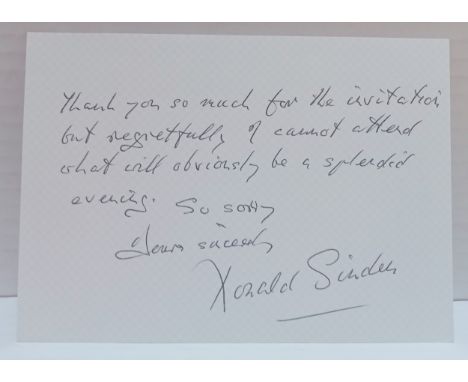 Thank you so much for the invitation
but regretfully I cannot attend
what will obviously be a splendid
evening. So sorry
Yours sincerely
Donald Sinden